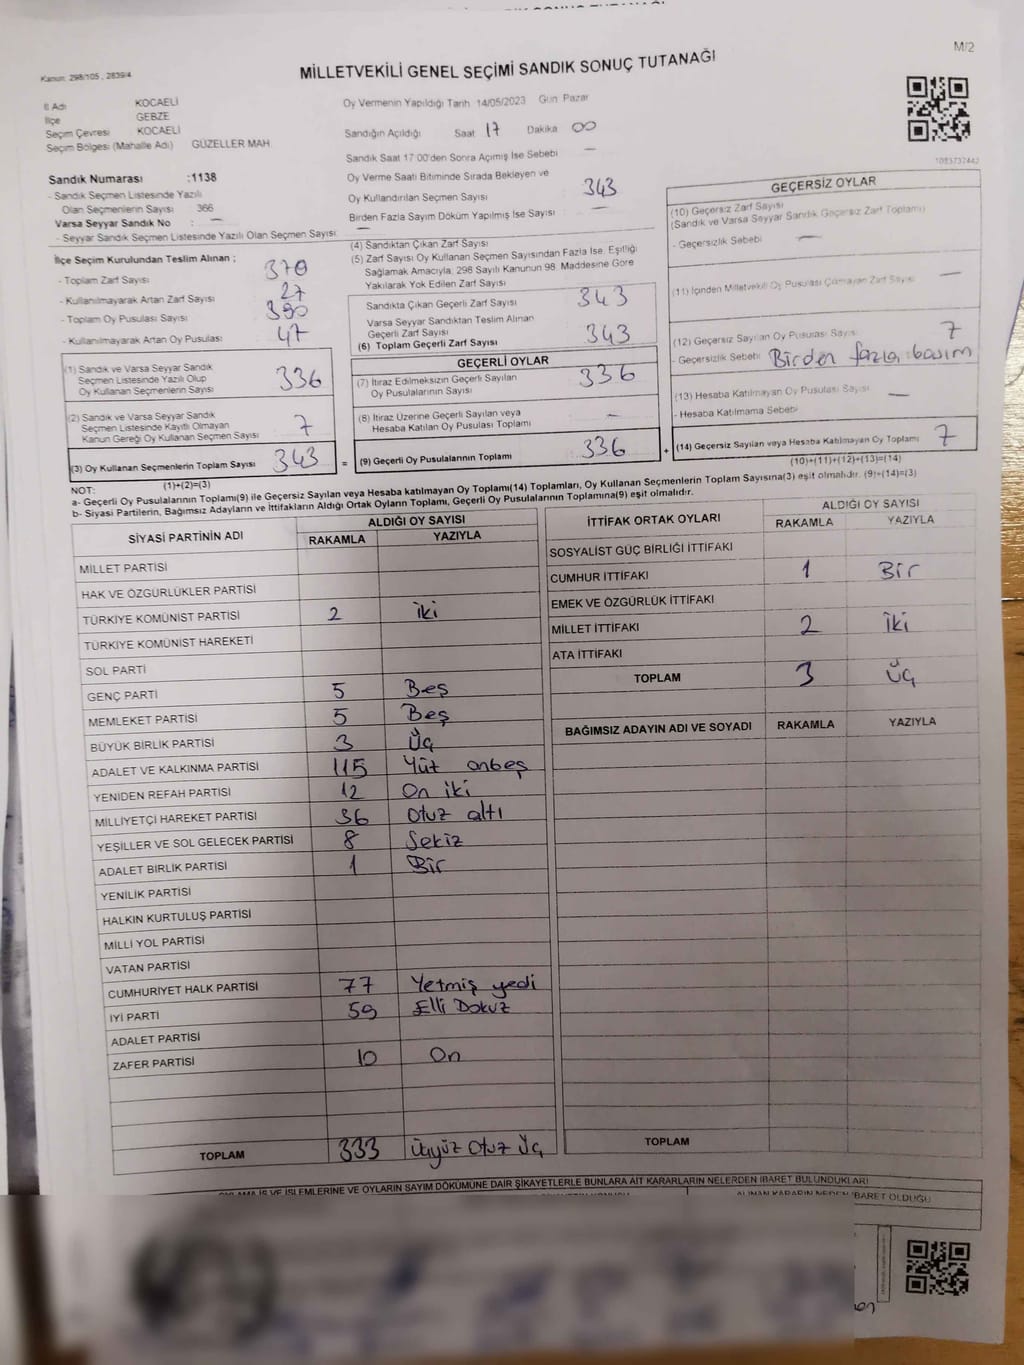 M/2
Kanun: 298/105 , 2839/4
MİLLETVEKİLİ GENEL SEÇİMİ SANDIK SONUÇ TUTANAĞI
İl Adı KOCAELİ
İlçe GEBZE
Seçim Çevresi KOCAELİ
Seçim Bölgesi (Mahalle Adı) GÜZELLER MAH.
Sandık Numarası :1138
- Sandık Seçmen Listesinde Yazılı
Olan Seçmenlerin Sayısı 366
Varsa Seyyar Sandık No : —
- Seyyar Sandık Seçmen Listesinde Yazılı Olan Seçmen Sayısı: —
İlçe Seçim Kurulundan Teslim Alınan ;
- Toplam Zarf Sayısı 370
- Kullanılmayarak Artan Zarf Sayısı 27
- Toplam Oy Pusulası Sayısı 390
- Kullanılmayarak Artan Oy Pusulası 47
(1) Sandık ve Varsa Seyyar Sandık
Seçmen Listesinde Yazılı Olup
Oy Kullanan Seçmenlerin Sayısı 336
(2) Sandık ve Varsa Seyyar Sandık
Seçmen Listesinde Kayıtlı Olmayan
Kanun Gereği Oy Kullanan Seçmen Sayısı 7
(3) Oy Kullanan Seçmenlerin Toplam Sayısı 343 =
(1)+(2)=(3)
Oy Vermenin Yapıldığı Tarih 14/05/2023 Gün Pazar
Sandığın Açıldığı Saat 17 Dakika 00
Sandık Saat 17:00'den Sonra Açımış İse Sebebi —
Oy Verme Saati Bitiminde Sırada Bekleyen ve
Oy Kullandırılan Seçmen Sayısı 343
Birden Fazla Sayım Döküm Yapılmış İse Sayısı —
(4) Sandıktan Çıkan Zarf Sayısı
(5) Zarf Sayısı Oy Kullanan Seçmen Sayısından Fazla İse, Eşitliği
Sağlamak Amacıyla, 298 Sayılı Kanunun 98. Maddesine Göre
Yakılarak Yok Edilen Zarf Sayısı
Sandıkta Çıkan Geçerli Zarf Sayısı 343
Varsa Seyyar Sandıktan Teslim Alınan
Geçerli Zarf Sayısı
(6) Toplam Geçerli Zarf Sayısı 343
GEÇERLİ OYLAR
(7) İtiraz Edilmeksizin Geçerli Sayılan
Oy Pusulalarının Sayısı 336
(8) İtiraz Üzerine Geçerli Sayılan veya
Hesaba Katılan Oy Pusulası Toplamı —
(9) Geçerli Oy Pusulalarının Toplamı 336 +
1083732442
GEÇERSİZ OYLAR
(10) Geçersiz Zarf Sayısı
(Sandık ve Varsa Seyyar Sandık Geçersiz Zarf Toplamı)
- Geçersizlik Sebebi —
(11) İçinden Milletvekili Oy Pusulası Çıkmayan Zarf Sayısı —
(12) Geçersiz Sayılan Oy Pusulası Sayısı 7
- Geçersizlik Sebebi Birden fazla basım
(13) Hesaba Katılmayan Oy Pusulası Sayısı —
- Hesaba Katılmama Sebebi
(14) Geçersiz Sayılan veya Hesaba Katılmayan Oy Toplamı 7
(10)+(11)+(12)+(13)=(14)
NOT:
a- Geçerli Oy Pusulalarının Toplamı(9) ile Geçersiz Sayılan veya Hesaba katılmayan Oy Toplamı(14) Toplamları, Oy Kullanan Seçmenlerin Toplam Sayısına(3) eşit olmalıdır. (9)+(14)=(3)
b- Siyasi Partilerin, Bağımsız Adayların ve İttifakların Aldığı Ortak Oyların Toplamı, Geçerli Oy Pusulalarının Toplamına(9) eşit olmalıdır.
SİYASİ PARTİNİN ADI ALDIĞI OY SAYISI
RAKAMLA YAZIYLA
MİLLET PARTİSİ
HAK VE ÖZGÜRLÜKLER PARTİSİ
TÜRKİYE KOMÜNİST PARTİSİ 2 iki
TÜRKİYE KOMÜNİST HAREKETİ
SOL PARTİ
GENÇ PARTİ 5 Beş
MEMLEKET PARTİSİ 5 Beş
BÜYÜK BİRLİK PARTİSİ 3 Üç
ADALET VE KALKINMA PARTİSİ 115 Yüz onbeş
YENİDEN REFAH PARTİSİ 12 On iki
MİLLİYETÇİ HAREKET PARTİSİ 36 Otuz altı
YEŞİLLER VE SOL GELECEK PARTİSİ 8 Sekiz
ADALET BİRLİK PARTİSİ 1 Bir
YENİLİK PARTİSİ
HALKIN KURTULUŞ PARTİSİ
MİLLİ YOL PARTİSİ
VATAN PARTİSİ
CUMHURİYET HALK PARTİSİ 77 Yetmiş yedi
İYİ PARTİ 59 Elli Dokuz
ADALET PARTİSİ
ZAFER PARTİSİ 10 On
TOPLAM 333 Üçyüz Otuz Üç
İTTİFAK ORTAK OYLARI ALDIĞI OY SAYISI
RAKAMLA YAZIYLA
SOSYALİST GÜÇ BİRLİĞİ İTTİFAKI
CUMHUR İTTİFAKI 1 Bir
EMEK VE ÖZGÜRLÜK İTTİFAKI
MİLLET İTTİFAKI 2 İki
ATA İTTİFAKI
TOPLAM 3 Üç
BAĞIMSIZ ADAYIN ADI VE SOYADI RAKAMLA YAZIYLA
TOPLAM
İŞ VE İŞLEMLERİNE VE OYLARIN SAYIM DÖKÜMÜNE DAİR ŞİKAYETLERLE BUNLARA AİT KARARLARIN NELERDEN İBARET BULUNDUKLARI
ALINAN KARARIN NEDEN İBARET OLDUĞU